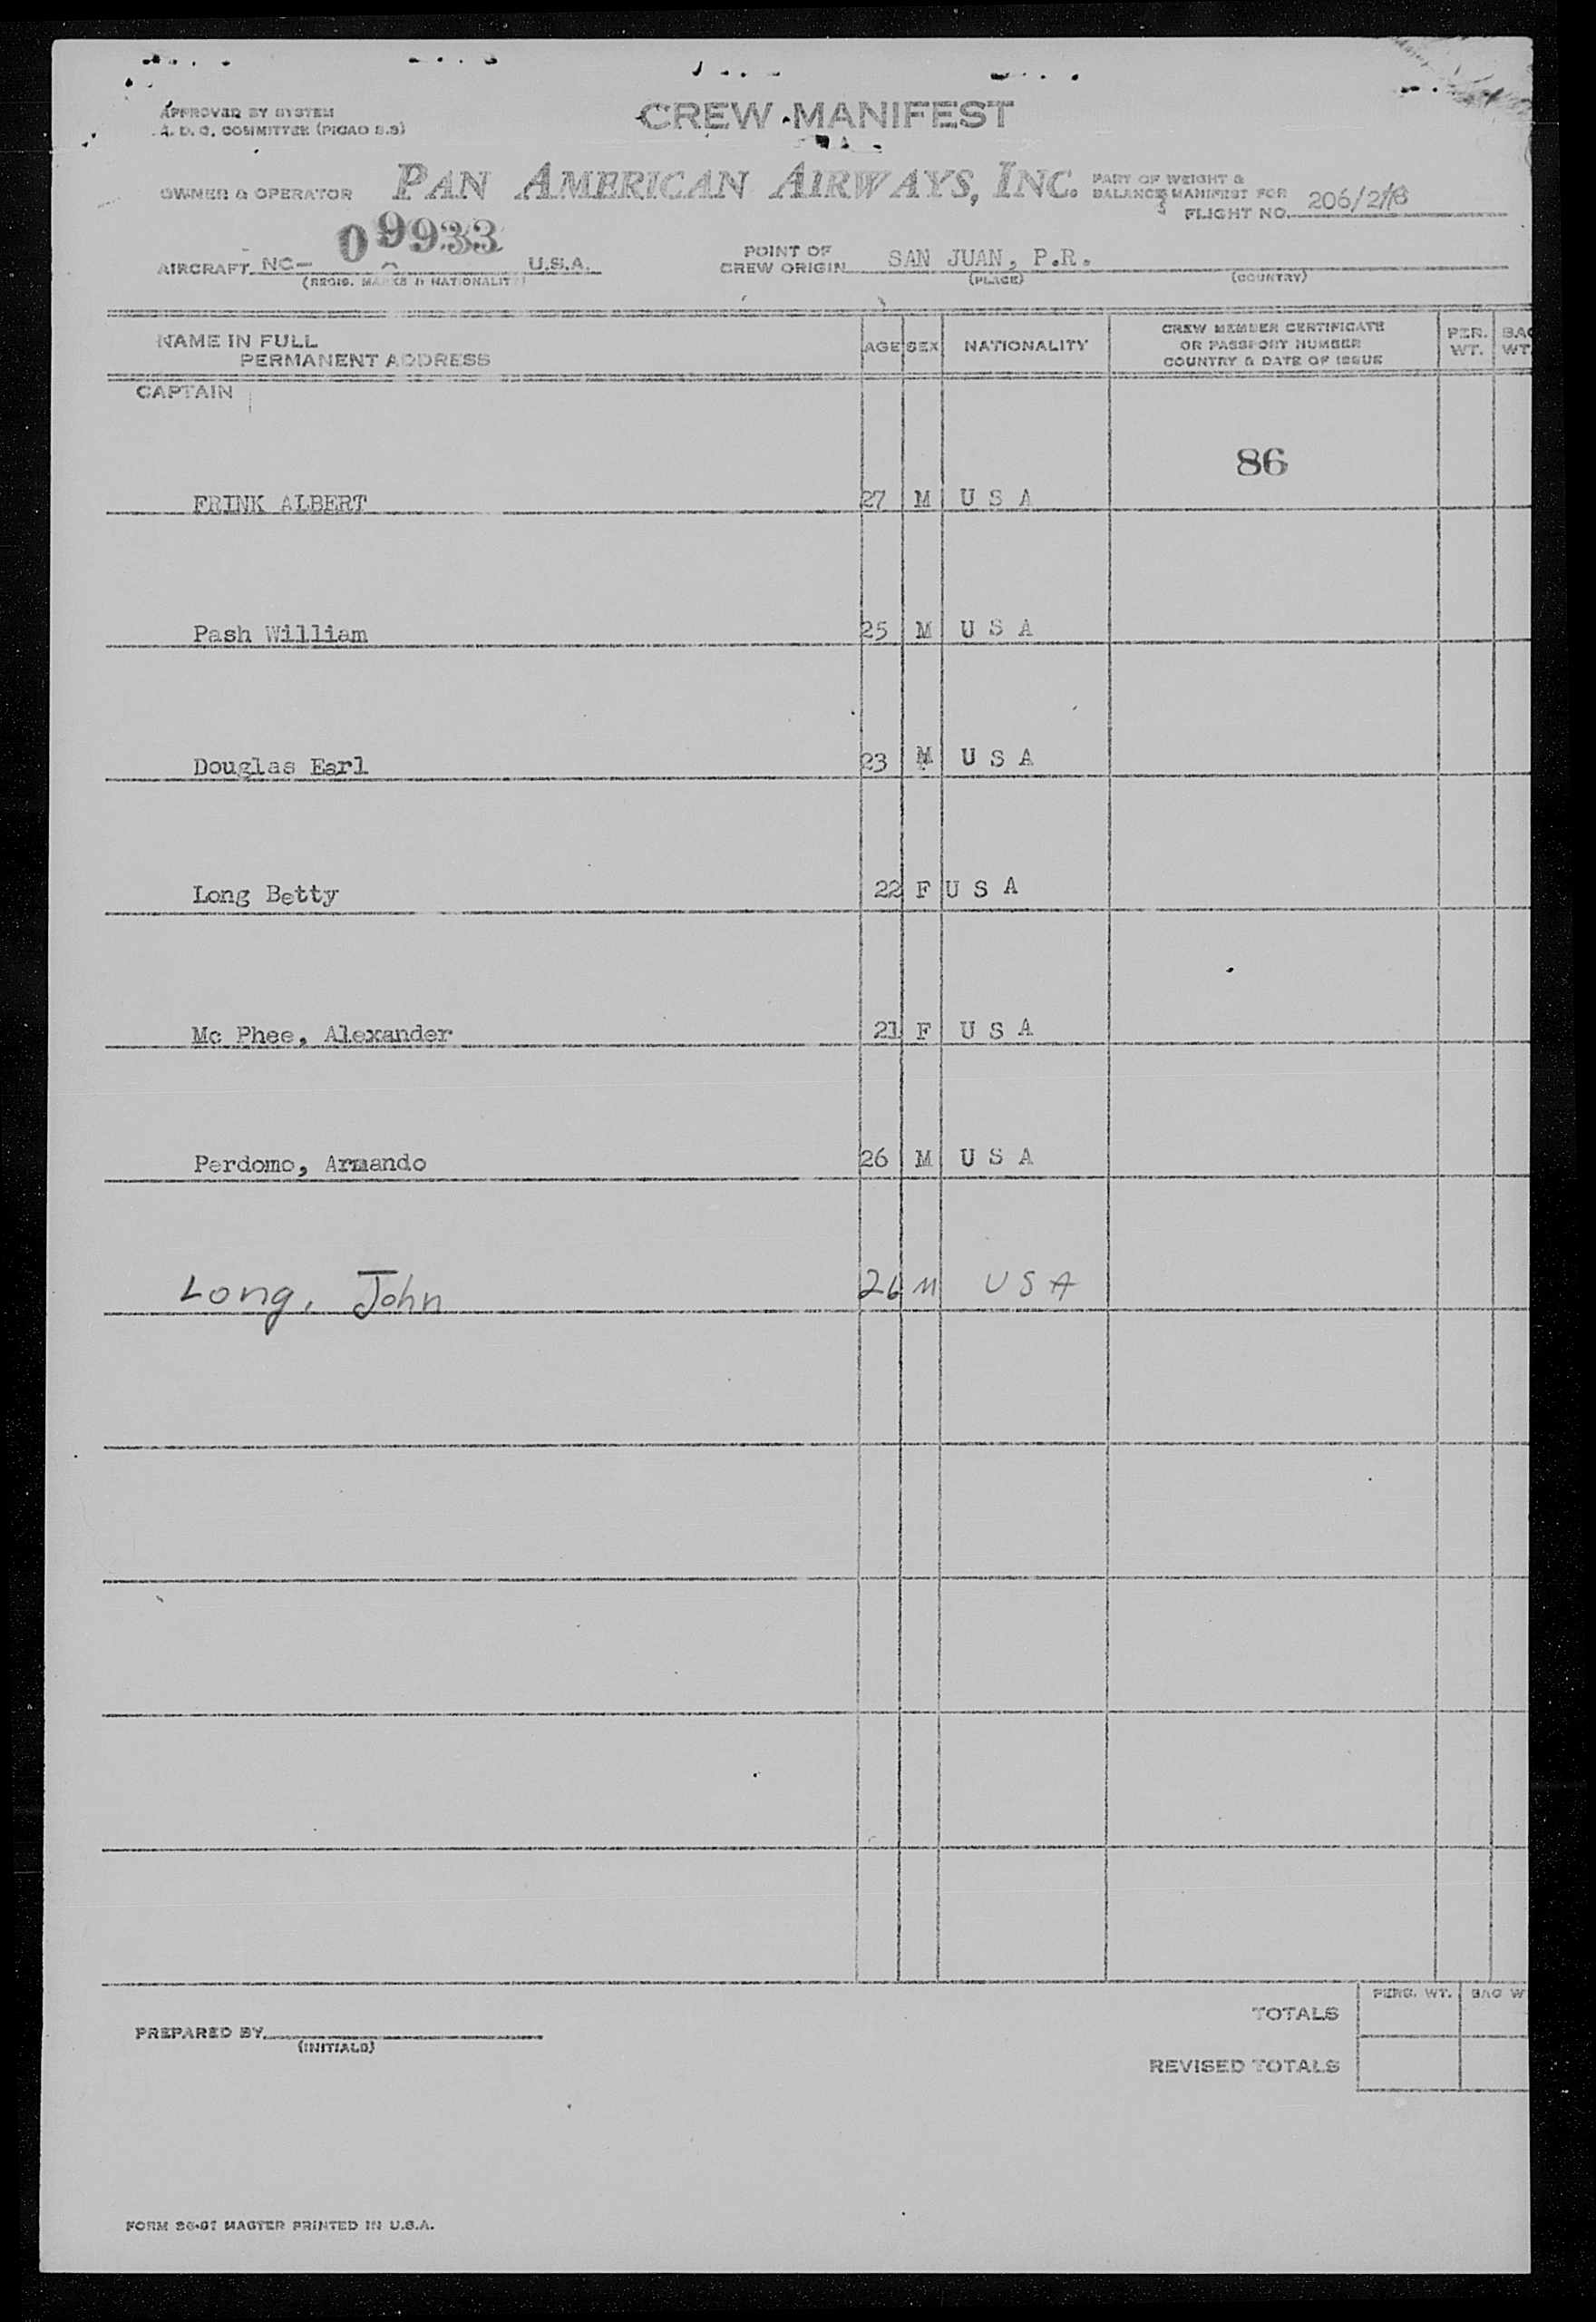 APPROVED BY SYSTEM
A. D. C. COMMITTEE (PICAO S.S)
CREW MANIFEST
OWNER & OPERATOR PAN AMERICAN AIRWAYS, INC.
PART OF WEIGHT &
BALANCE MANIFEST FOR
FLIGHT NO. 206/2
09933
AIRCRAFT NC- U.S.A.
(REGIS. MARKS & NATIONALITY)
POINT OF
CREW ORIGIN SAN JUAN, P.R.
(PLACE) (COUNTRY)
NAME IN FULL
PERMANENT ADDRESS
AGE SEX NATIONALITY
CREW MEMBER CERTIFICATE
OR PASSPORT NUMBER
COUNTRY & DATE OF ISSUE
PER. WT.
BAG WT.
CAPTAIN
86
FRINK ALBERT 27 M U S A
Pash William 25 M U S A
Douglas Earl 23 M U S A
Long Betty 22 F U S A
Mc Phee, Alexander 21 F U S A
Perdomo, Armando 26 M U S A
Long, John 26 M USA
PERS. WT. BAG W
TOTALS
PREPARED BY
(INITIALS)
REVISED TOTALS
FORM MASTER PRINTED IN U.S.A.